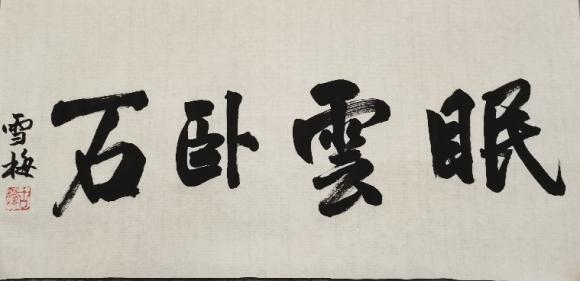 眠雲卧石
雪梅